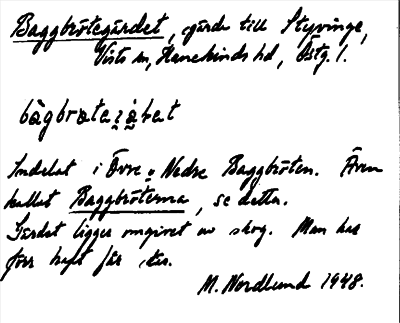 Baggbrötegärdet, gärde till Styvinge,
Vists sn, Hanekinds hd, Östg. l.
bàgbrøteɪ̯ä̀ṛet
Indelat i Övre o. Nedre Baggbröten. Även
kallat Baggbröterna, se detta.
Gärdet ligger omgivet av skog. Man har
förr haft får där.
M. Nordlund 1948.